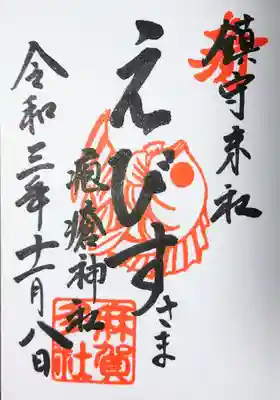 奉拝
鎮守末社
えびすさま
疱瘡神社
麻賀多社
令和三年十一月八日